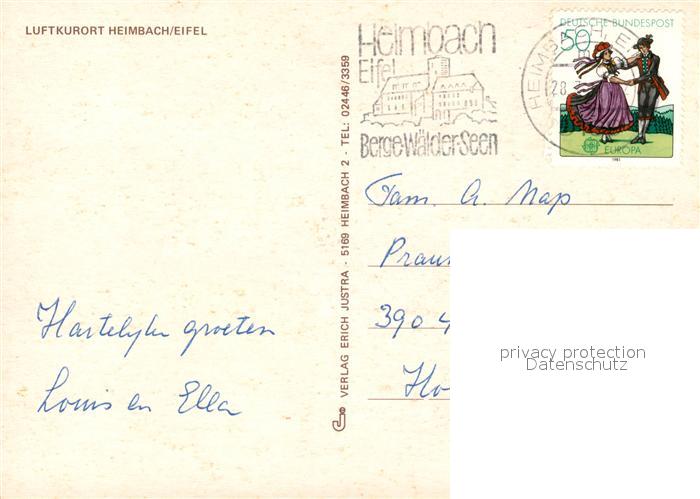 LUFTKURORT HEIMBACH/EIFEL
Heimbach
Eifel
Berge-Wälder-Seen
DEUTSCHE BUNDESPOST
50
EUROPA
1981
28
VERLAG ERICH JUSTRA - 5169 HEIMBACH 2 - TEL: 02446/3359
Fam. A. Nap
390
Hartelijke groeten
Louis en Ella
privacy protection
Datenschutz